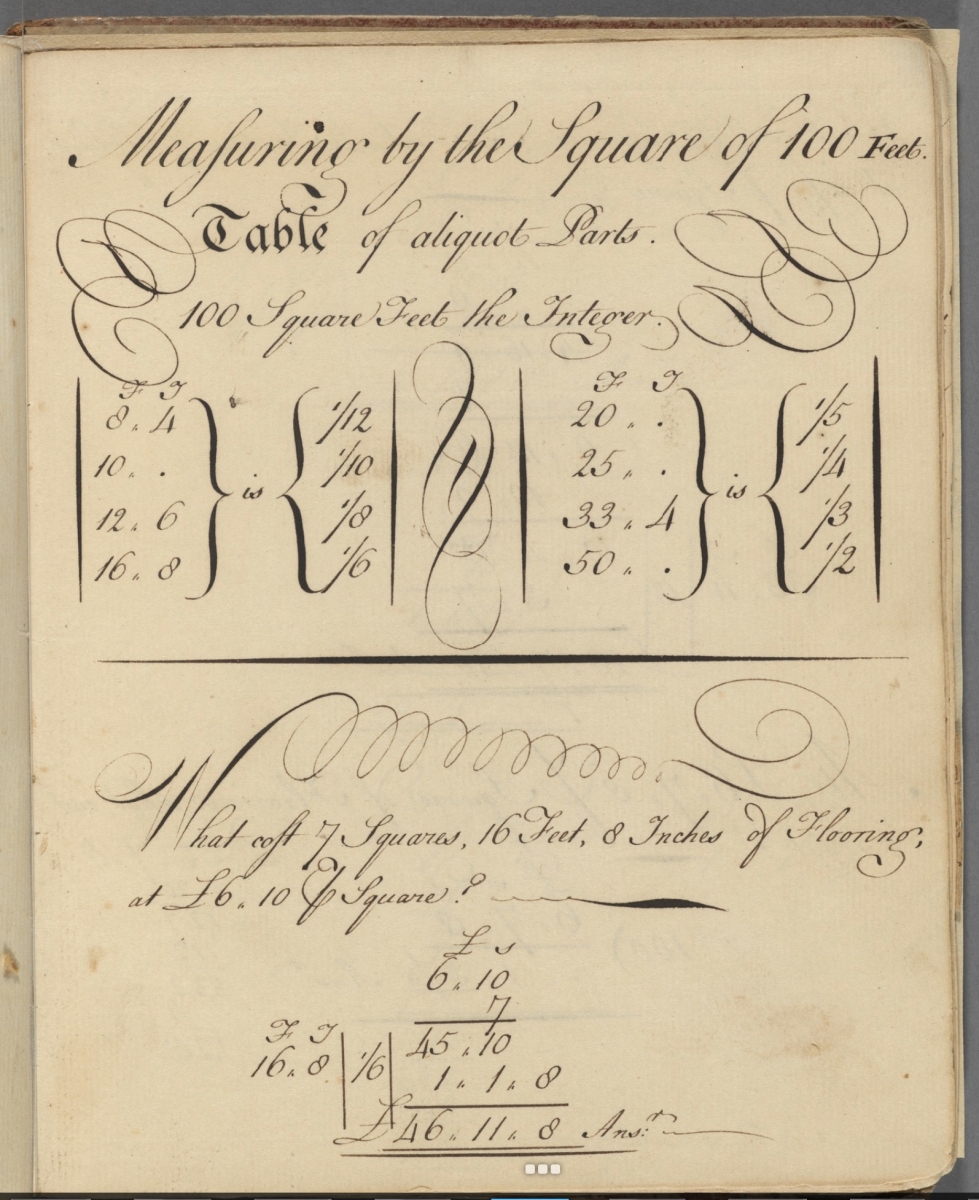 Meaſuring by the Square of 100 Feet.
Table of aliquot Parts.
100 Square Feet the Integer.
F I F I
8 „ 4 1/12 20 „ . 1/5
10 „ . 1/10 25 „ . 1/4
is is
12 „ 6 1/8 33 „ 4 1/3
16 „ 8 1/6 50 „ . 1/2
What coſt 7 Squares, 16 Feet, 8 Inches of Flooring,
at £6 „ 10 ⅌ Square?
£ s
6 „ 10
7
F I
45 „ 10
16 „ 8 1/6
1 „ 1 „ 8
£46 „ 11 „ 8 Ans:r